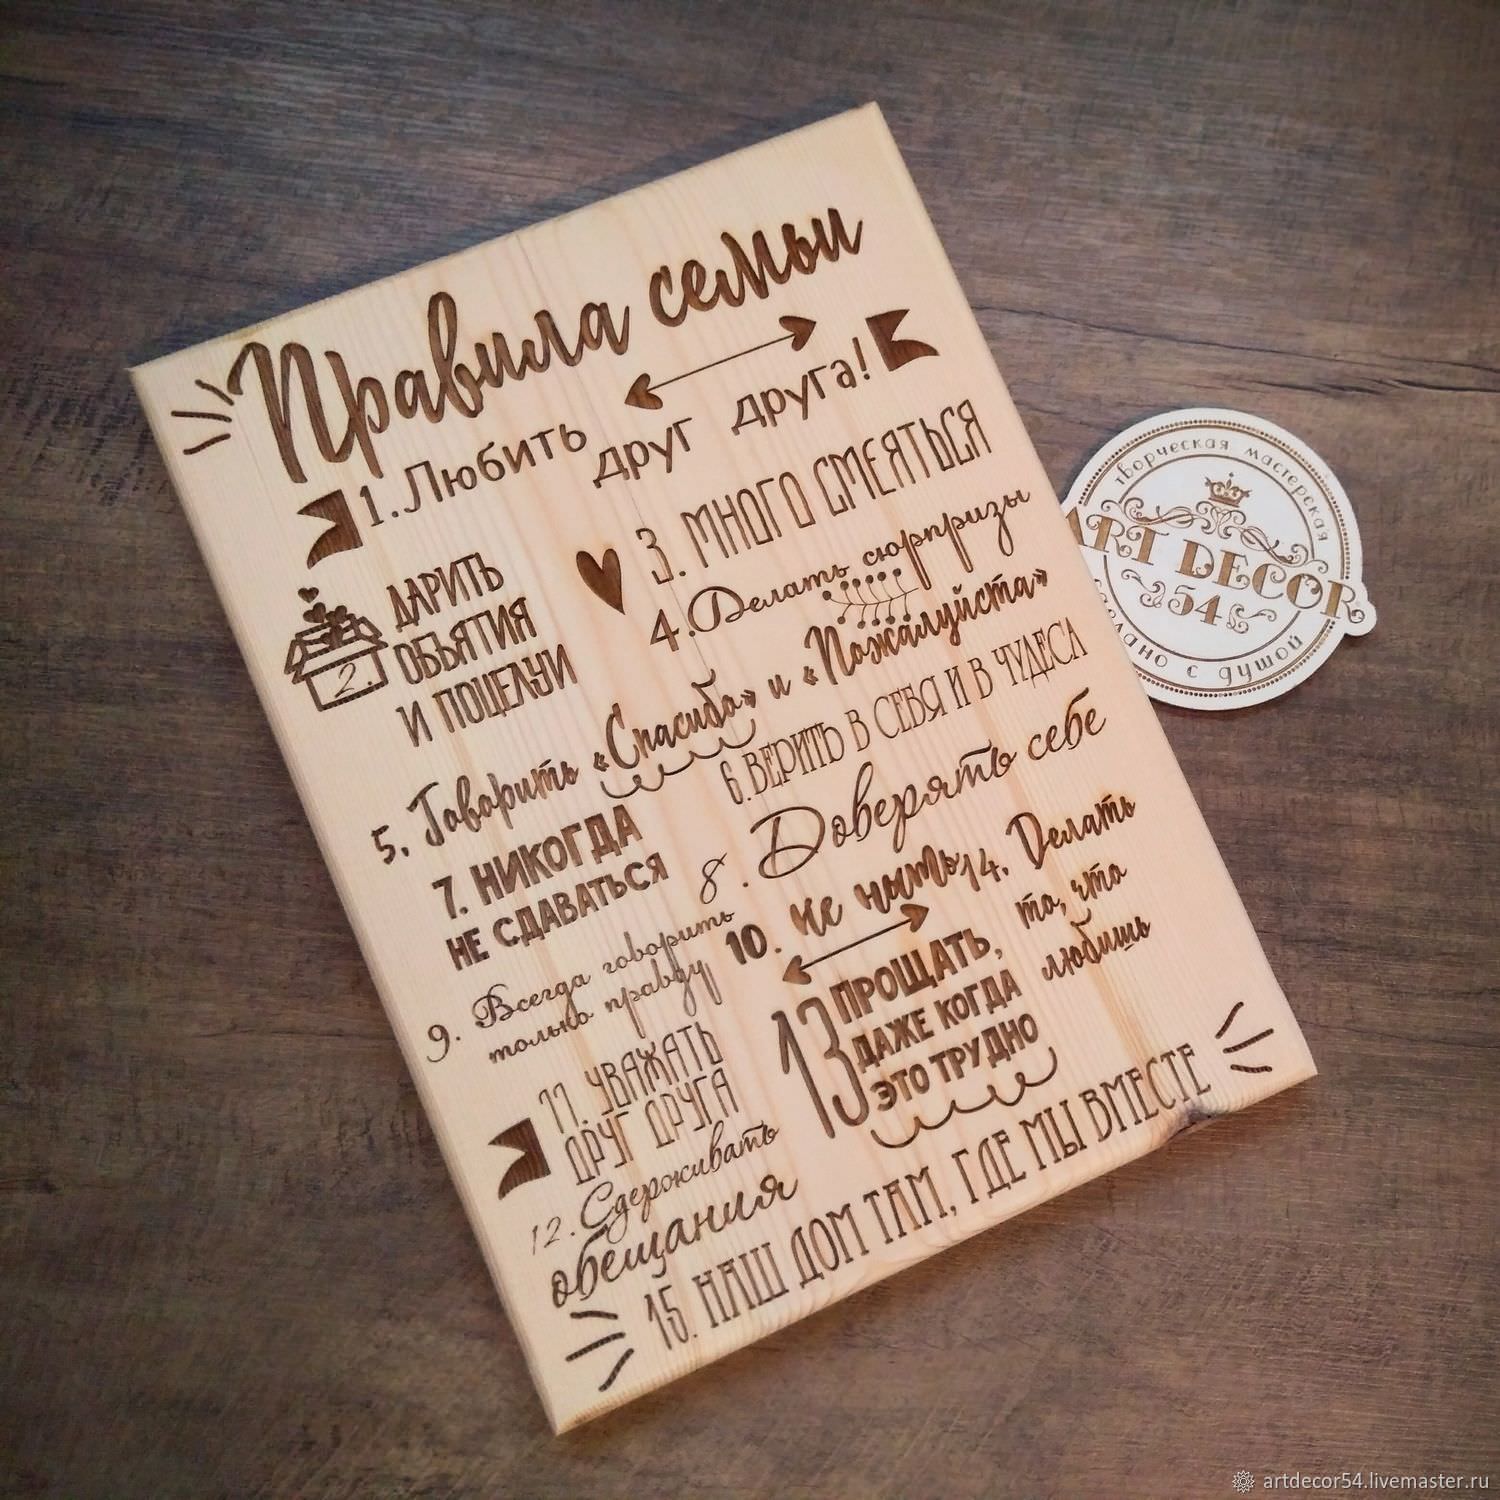 Правила семьи
1. Любить друг друга!
2.
ДАРИТЬ
ОБЪЯТИЯ
И ПОЦЕЛУИ
3. МНОГО СМЕЯТЬСЯ
4. Делать сюрпризы
5. Говорить «Спасибо» и «Пожалуйста»
6. ВЕРИТЬ В СЕБЯ И В ЧУДЕСА
7. НИКОГДА
НЕ СДАВАТЬСЯ
8. Доверять себе
9. Всегда говорить
только правду
10. не ныть
11. УВАЖАТЬ
ДРУГ ДРУГА
12. Сдерживать
обещания
13 ПРОЩАТЬ,
ДАЖЕ КОГДА
ЭТО ТРУДНО
14. Делать
то, что
любишь
15. НАШ ДОМ ТАМ, ГДЕ МЫ ВМЕСТЕ
творческая мастерская
ART DECOR
54
сделано с душой
artdecor54.livemaster.ru